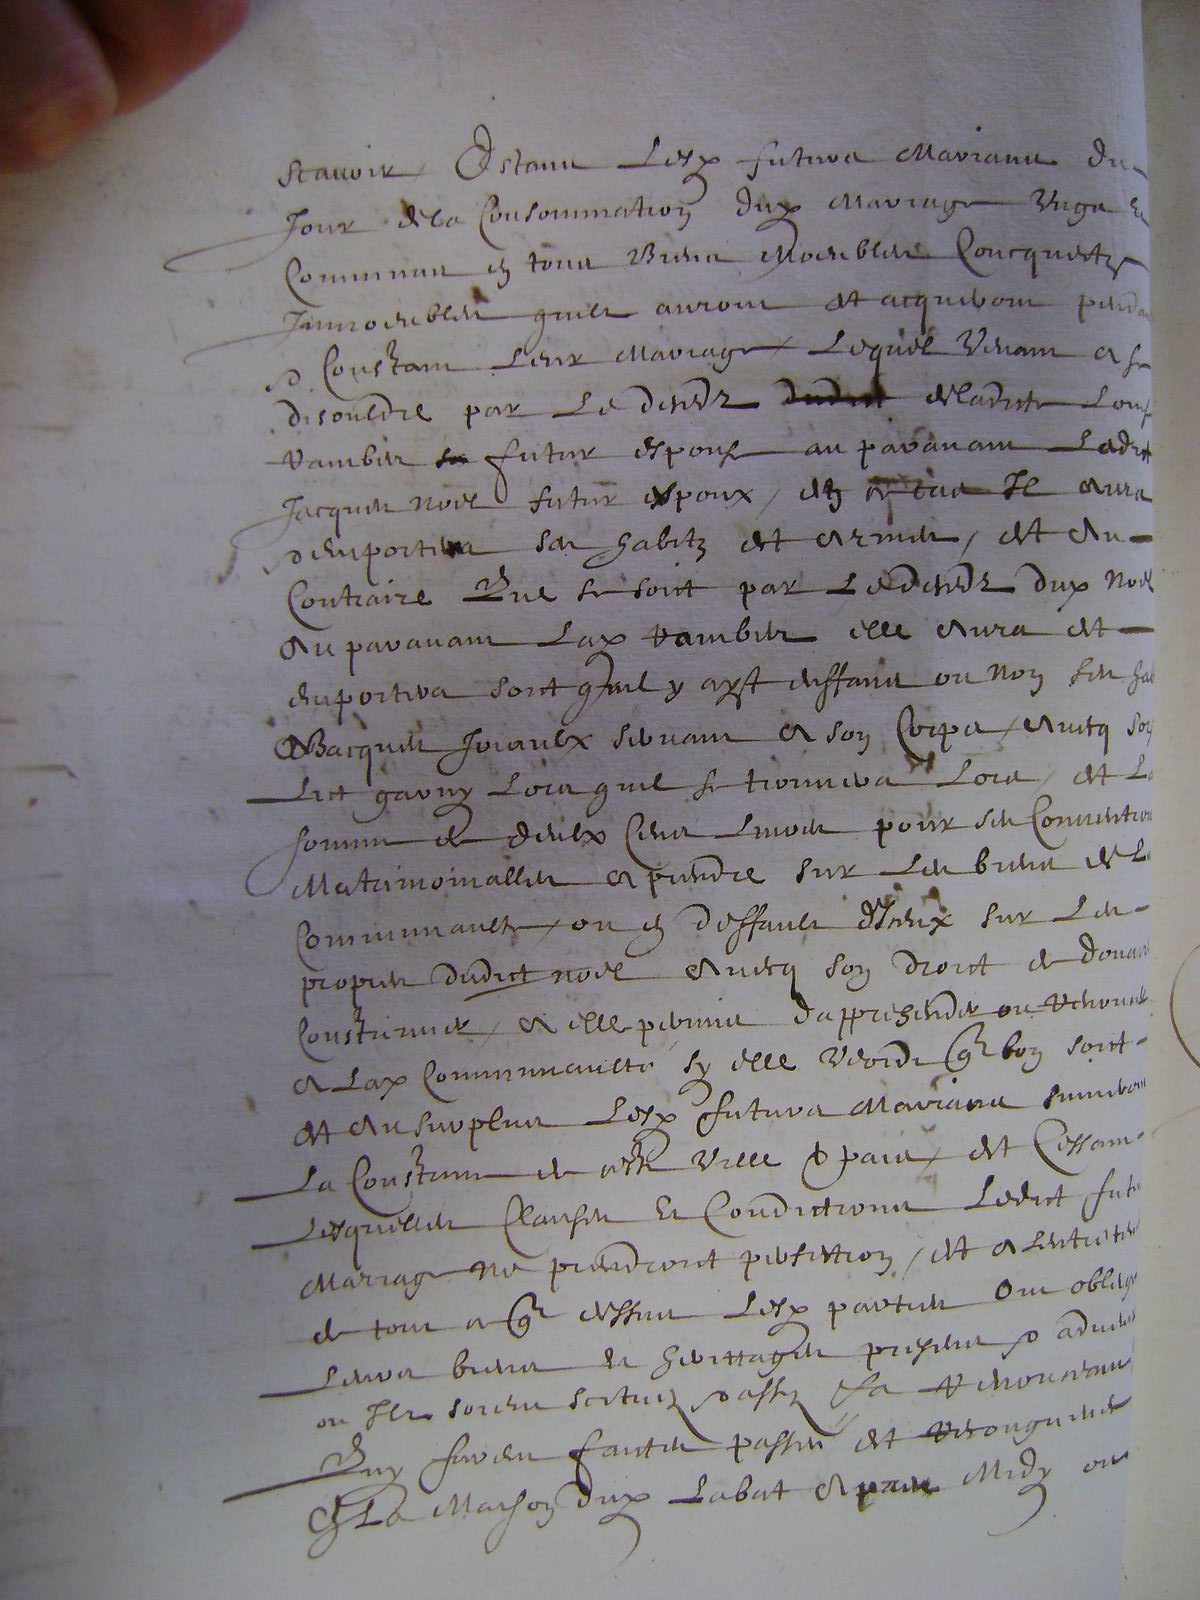 scavoir Estant lesd futurs Mariant du
Jour de la Consommation dud Mariage Ungs et
Communs en tous Biens Moeubles Concquestz
Immoeubles quilz auront et acqueront pendant
Constant leur Mariage / Lequel Venant a se
disouldre par le deceds dudict deladicte
Rambier sa future espouse auparavant Ledict
Jacques Noel futur espoux / en ce cas Il aura
emportera ses habitz et armes / et au
Contraire Que se soict par Le deceds dud Noel
Auparavant Lad Rambier elle aura et
emportera soict quil y ayt enffans ou Non ses
Bacques Joiaulx servans a son Corps / avecq son
Lict garny Lors quil se trouvera Lors / et La
somme de deulx Cens Livres pour ses Convention
Matrimoinalles a prendre sur Les biens de La
Communaulte / ou en deffault diceux sur Les
propres dudict Noel avecq son droict de douaire
Coustumier / a elle permis dapprehender ou Renoncer
a Lad Communaulté sy elle Veoidt que bon soict
et au surplus Lesd futurs Marians suiveront
La Coustume de ceste Ville & pais / et Cessant
Lesquelles Clauses et Conditions Ledict futur
Mariage Ne prendroict perfection / et a Lentretenement
de tout ce que dessus Lesd parties Ont oblige
Leurs biens et heritages presens & advenir
ou Ilz soient scituez & assis
Luy faicte passé et Recongnu
En La Maison dud Labat Midy ou